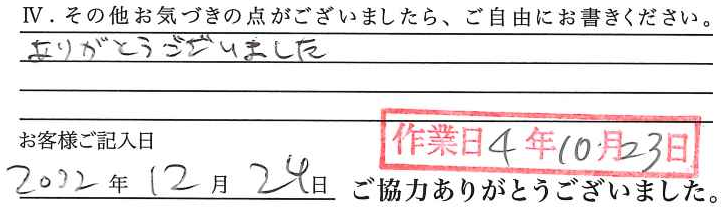 Ⅳ．その他お気づきの点がございましたら、ご自由にお書きください。
ありがとうございました
お客様ご記入日
作業日4年10月23日
2022年12月24日
ご協力ありがとうございました。